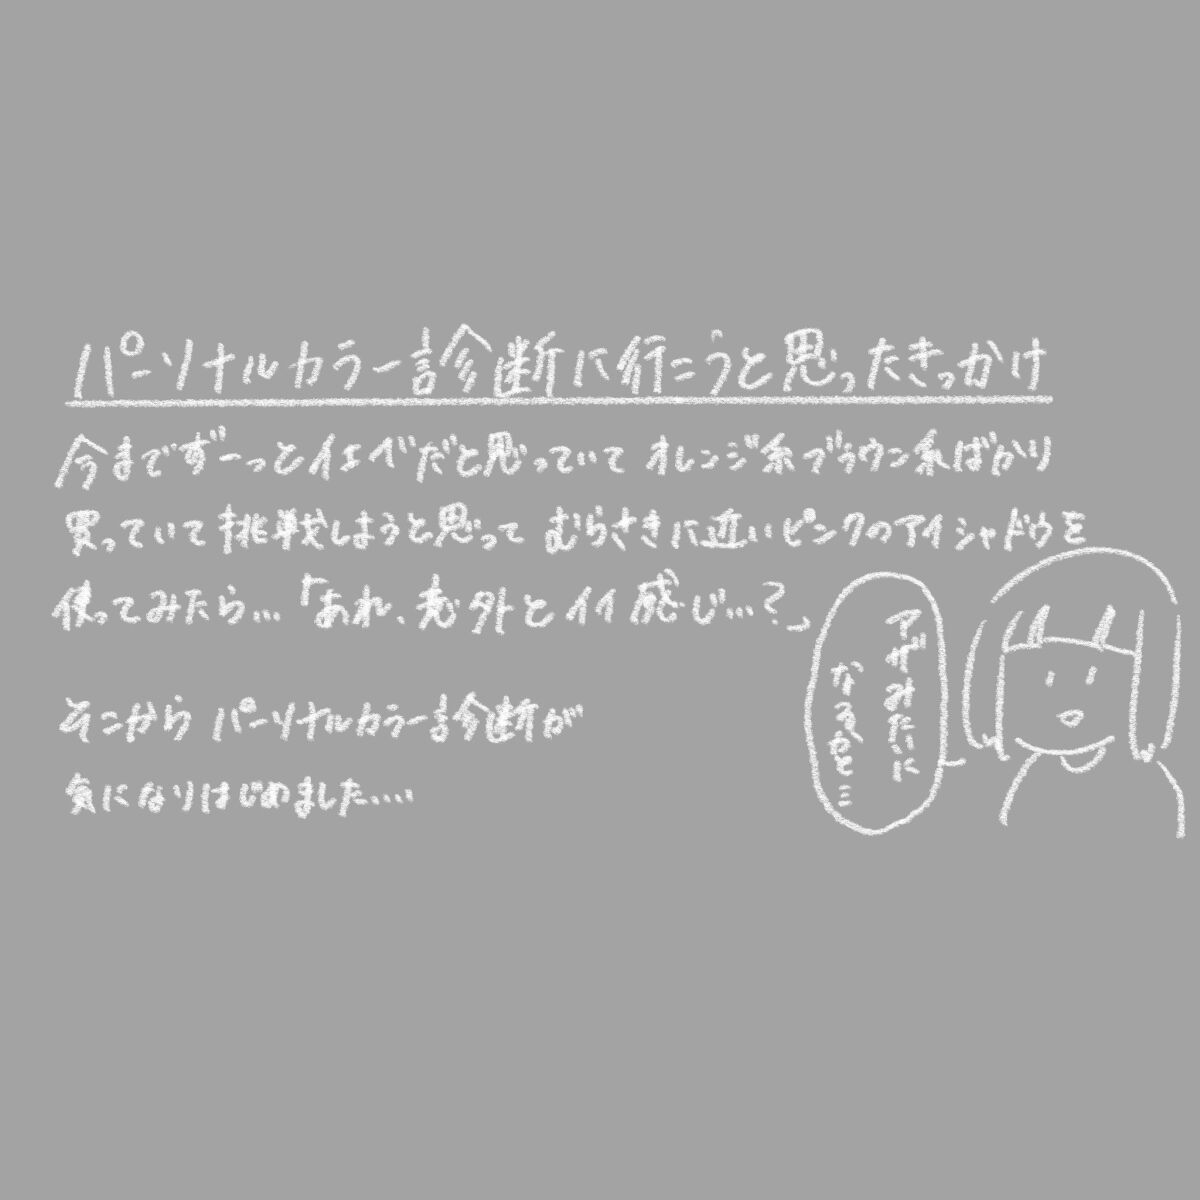 パーソナルカラー診断に行こうと思ったきっかけ
今までずーっとイエベだと思っていて オレンジ系ブラウン系ばかり
買っていて挑戦しようと思って むらさきに近いピンクのアイシャドウを
使ってみたら…「あれ、意外とイイ感じ…？」
アザみたいに
なるかと…
そこから パーソナルカラー診断が
気になりはじめました….